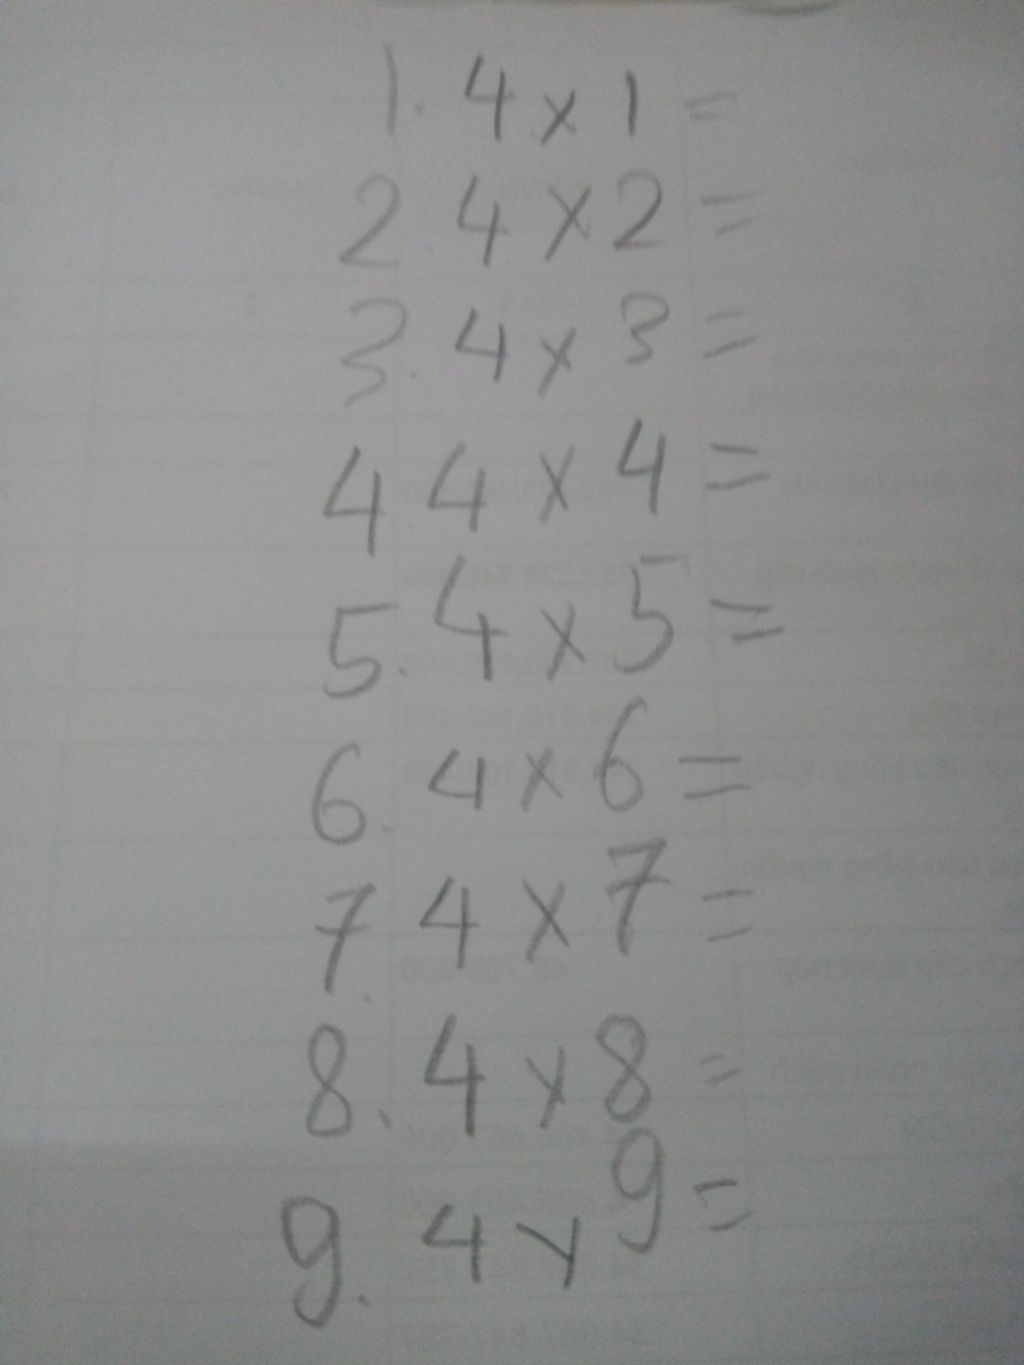 1. 4 x 1 =
2. 4 x 2 =
3. 4 x 3 =
4 4 x 4 =
5. 4 x 5 =
6. 4 x 6 =
7. 4 x 7 =
8. 4 x 8 =
9. 4 x 9 =